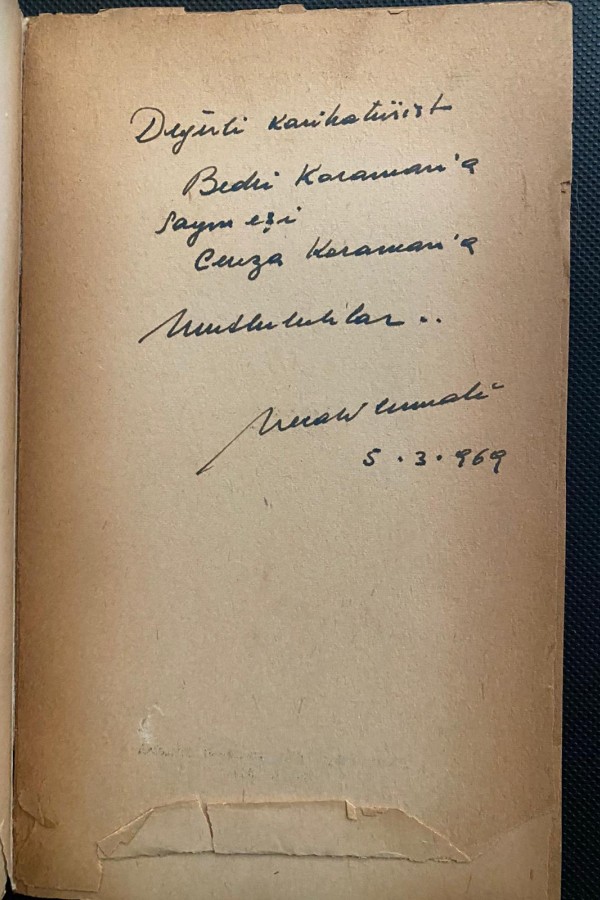 Değerli karikatürist
Bedri Koraman'a
Sayın eşi
Cenza Koraman'a
Mutluluklar..
Necati Cumalı
5.3.969